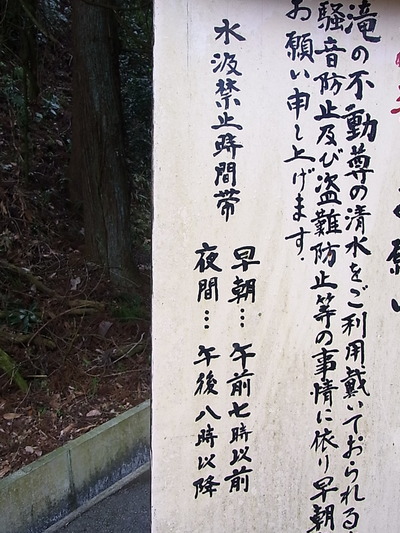 お願い
滝の不動尊の清水をご利用戴いておられる
騒音防止及び盗難防止等の事情に依り早朝
お願い申し上げます.
水汲禁止時間帯
早朝…午前七時以前
夜間…午後八時以降